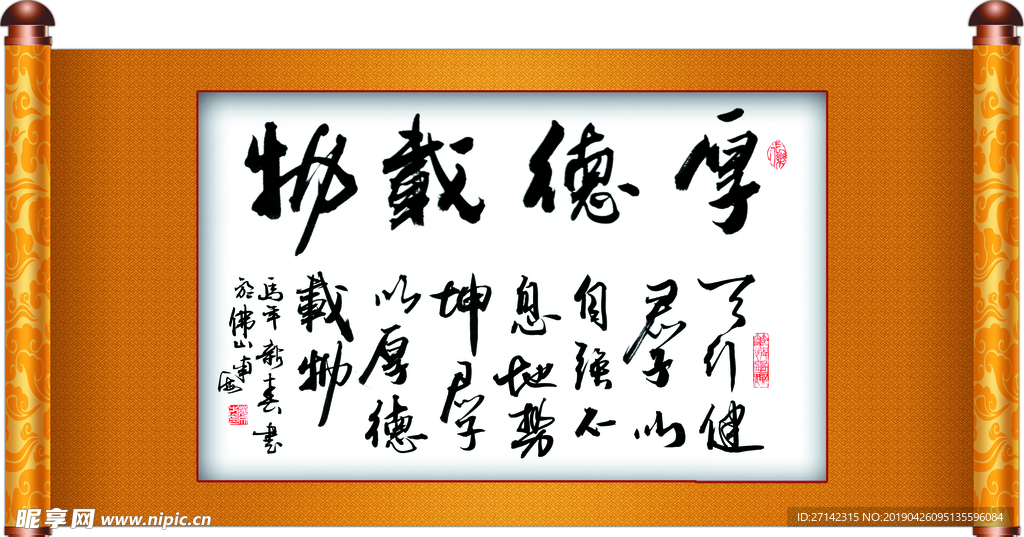 厚德載物
天行健
君子以
自强不
息地势
坤君子
以厚德
載物
馬年新春書
於佛山南海
昵享网 www.nipic.cn
ID:27142315 NO:20190426095135596084